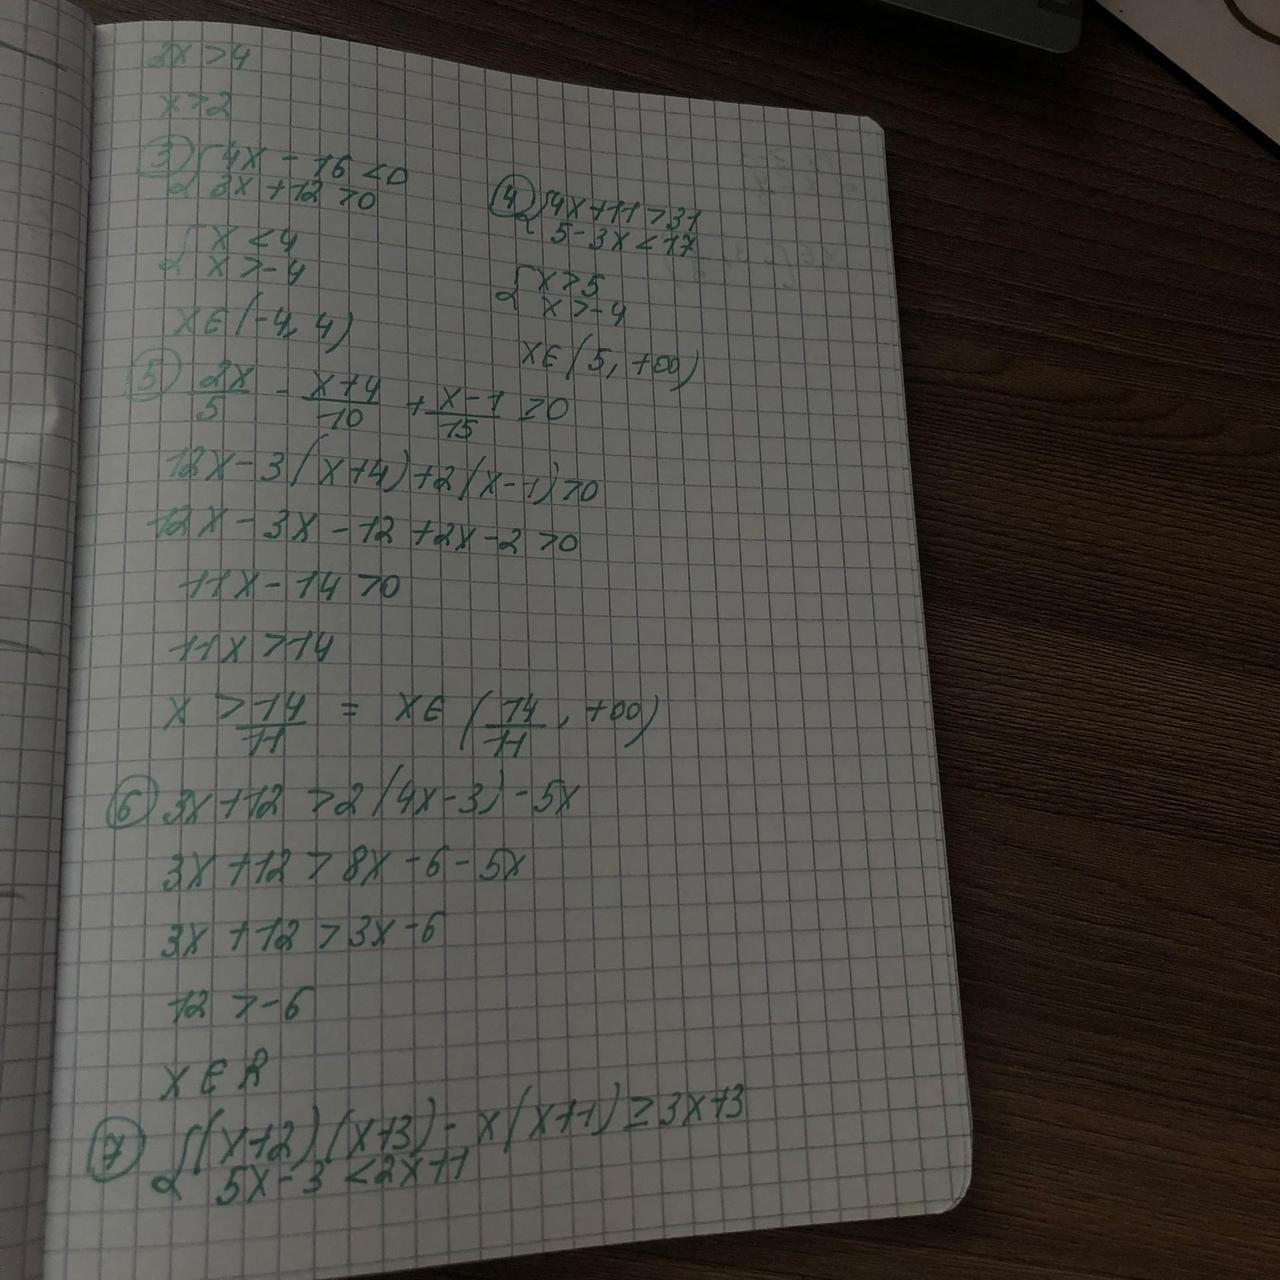 2x > 4
x > 2
③ { 4x - 16 < 0
3x + 12 > 0
{ x < 4
x > -4
x ∈ (-4, 4)
④ { 4x + 11 > 31
5 - 3x < 17
{ x > 5
x > -4
x ∈ (5, +∞)
⑤ 2x/5 - x+4/10 + x-1/15 > 0
12x - 3(x+4) + 2(x-1) > 0
12x - 3x - 12 + 2x - 2 > 0
11x - 14 > 0
11x > 14
x > 14/11 = x ∈ (14/11, +∞)
⑥ 3x + 12 > 2(4x-3) - 5x
3x + 12 > 8x - 6 - 5x
3x + 12 > 3x - 6
12 > -6
x ∈ R
⑦ { (x+2)(x+3) - x(x+1) ≥ 3x+3
5x - 3 < 2x + 1